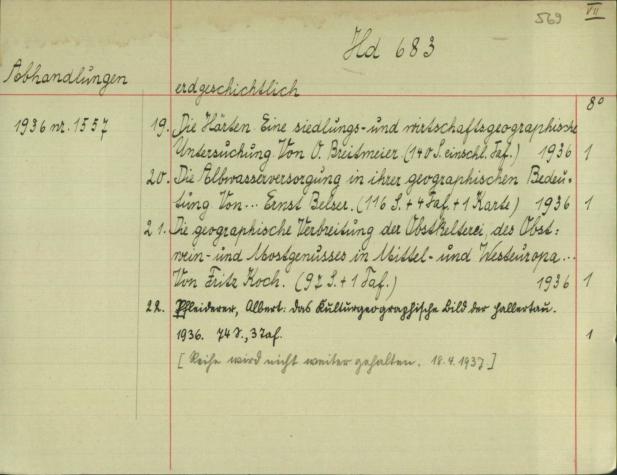 569 VII
Hd 683
Abhandlungen
erdgeschichtlich
8°
1936 nr. 1557 19. Die Härten. Eine siedlungs- und wirtschaftsgeographische
Untersuchung. Von O. Breitmeier. (140 S. einschl. Taf.) 1936 1
20. Die Albwasserversorgung in ihrer geographischen Bedeu-
tung Von... Ernst Belser. (116 S. + 4 Taf. + 1 Karte) 1936 1
21. Die geographische Verbreitung der Obstkelterei, des Obst=
wein- und Mostgenusses in Mittel- und Westeuropa...
Von Fritz Koch. (97 S. + 1 Taf.) 1936 1
22. Pfleiderer, Albert: das Kulturgeographische Bild der Hallertau.
1936. 74 S., 3 Taf. 1
[Reihe wird nicht weiter gehalten. 18.4.1937]